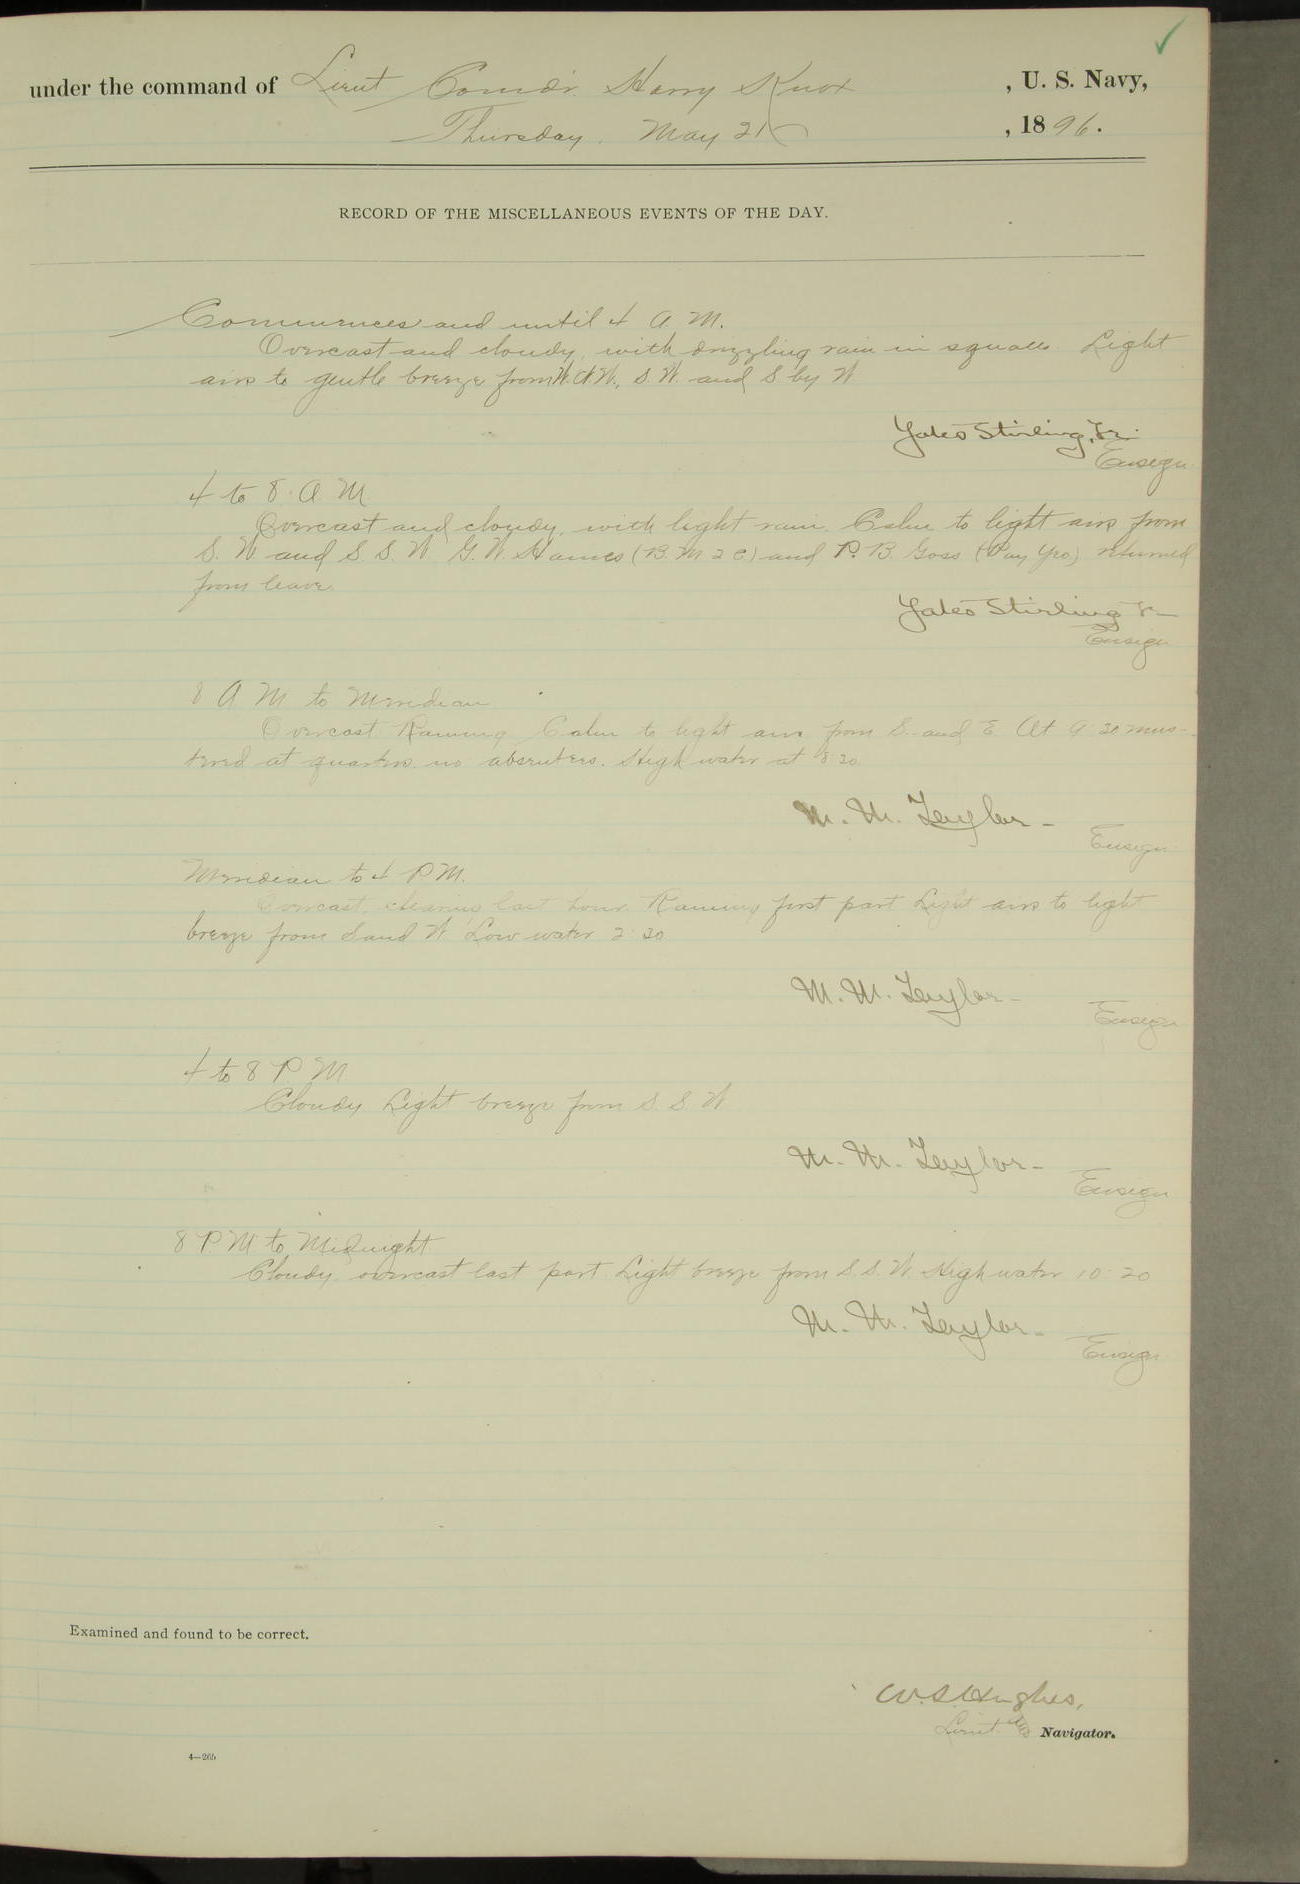 under the command of Lieut Comdr. Harry Knox, U. S. Navy,
Thursday, May 21, 1896.
RECORD OF THE MISCELLANEOUS EVENTS OF THE DAY.
Commences and until 4 A. M.
Overcast and cloudy, with drizzling rain in squalls. Light
airs to gentle breeze from W.N.W., S. W. and S by W
Yates Stirling, Jr.
Ensign
4 to 8 A M
Overcast and cloudy, with light rain. Calm to light airs from
S. W and S. S. W G. W Hames (B. M 2 C) and P. B. Goss (Pay Yeo) returned
from leave.
Yates Stirling Jr
Ensign
8 A M to Meridian
Overcast Raining Calm to light airs from S. and E. At 9:30 mus-
tered at quarters no absentees. High water at 8 20
M. M. Taylor -
Ensign
Meridian to 4 P.M.
Overcast, clearing last hour. Raining first part Light airs to light
breeze from S and W Low water 2:20
M. M. Taylor -
Ensign
4 to 8 P M
Cloudy Light breeze from S. S W
M. M. Taylor -
Ensign
8 P M to Midnight
Cloudy, overcast last part. Light breeze from S. S. W. High water 10:20
M. M. Taylor -
Ensign
Examined and found to be correct.
W. S. Hughes,
Lieut. Navigator.
4—265